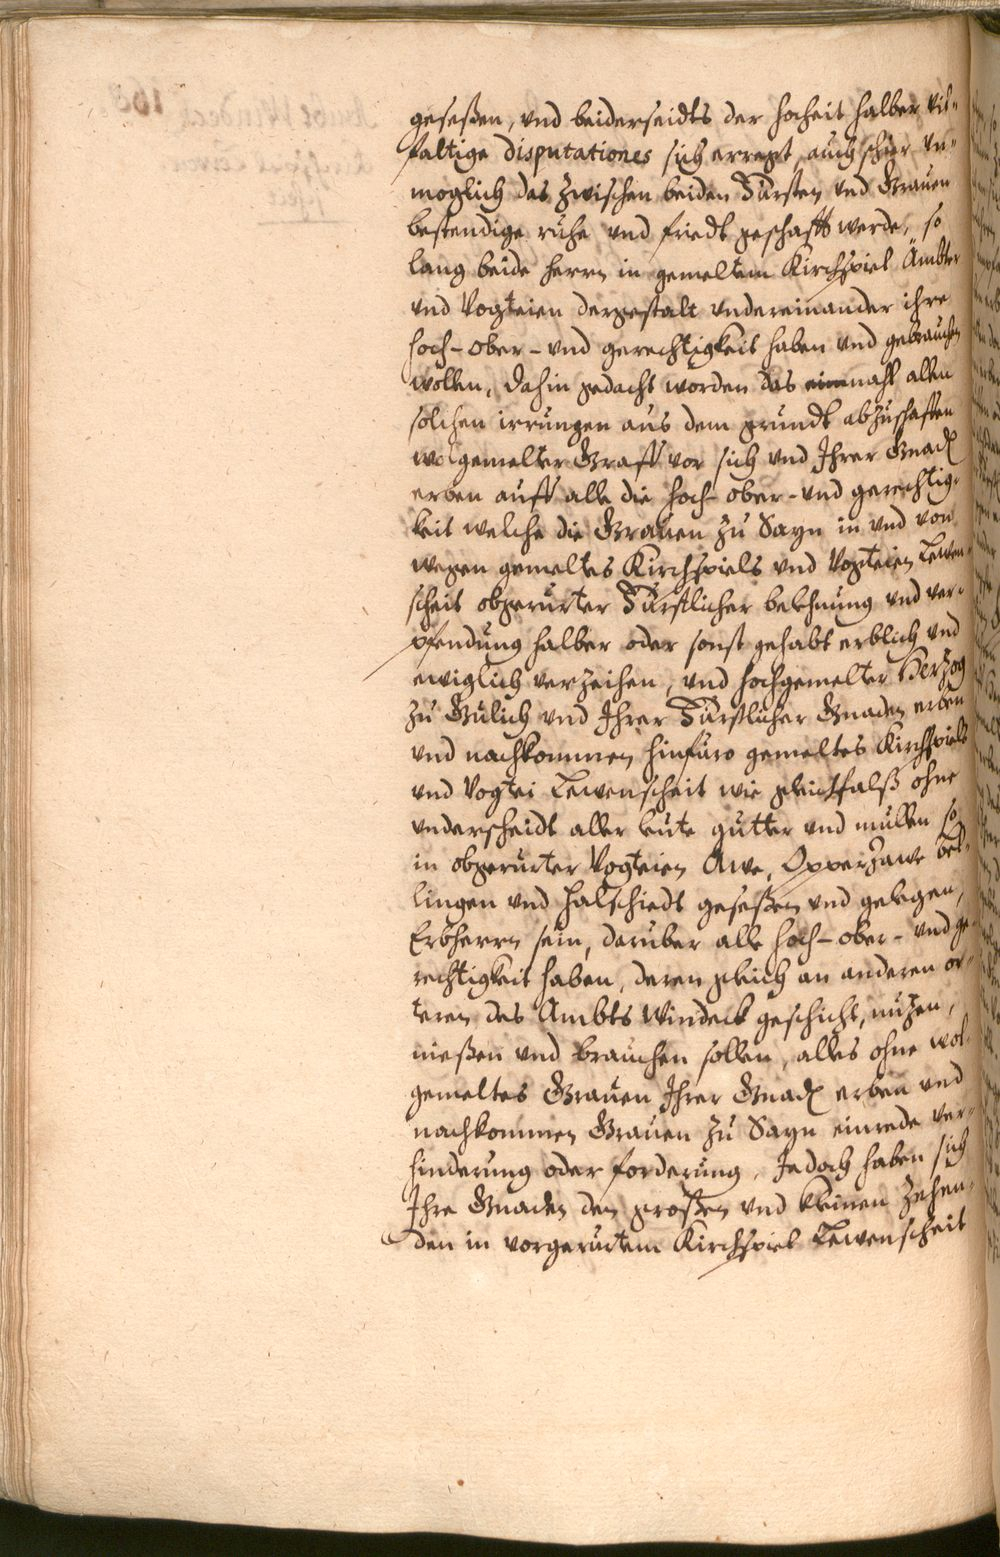 geseßen, vnd beiderseidts der hocheit halber vil-
faltige disputationes sich erregt, auch schier vn-
moglich das zwischen beiden Fürsten vnd Grauen
bestendige ruhe vnd friedt geschafft werde, so
lang beide herrn in gemeltem Kirchspiel Ämbter
vnd Vogteien dergestalt vndereinander ihre
hoch- ober- vnd gerechtigkeit haben vnd gebrauchen
wöllen, dahin gedacht worden das einmahl allen
solchen irrungen aus dem grundt abzuschaffen
wolgemelter Graff vor sich vnd Ihrer Gnad
erben auff alle die hoch- ober- vnd gerechtig-
keit welche die Grauen zu Sayn in vnd von
wegen gemeltes Kirchspiels vnd Vogteien Lewen-
scheit obgerurter Fürstlicher belehnung vnd ver-
pfendung halber oder sonst gehabt erblich vnd
ewiglich verzeihen, vnd hochgemelter Herzog
zu Gulich vnd Ihrer Fürstlicher Gnaden erben
vnd nachkommen hinfüro gemeltes Kirchspiels
vnd Vogtei Lewenscheit wie gleichfalß ohne
vnderscheidt aller leute gutter vnd mullen so
in obgerurter Vogteien Awe, Opperzawe
lingen vnd halschiedt geseßen vnd gelegen,
Erbherrn sein, daruber alle hoch- ober- vnd ge-
rechtigkeit haben, deren gleich an anderen or-
teren des Ambts Windeck geschicht, nuzen,
nießen vnd brauchen sollen, alles ohne wol-
gemeltes Grauen Ihrer Gnad erben vnd
nachkommen Grauen zu Sayn einrede ver-
hinderung oder forderung. Jedoch haben sich
Ihre Gnaden den großen vnd kleinen Zehen-
den in vorgerurtem Kirchspiel Lewenscheit